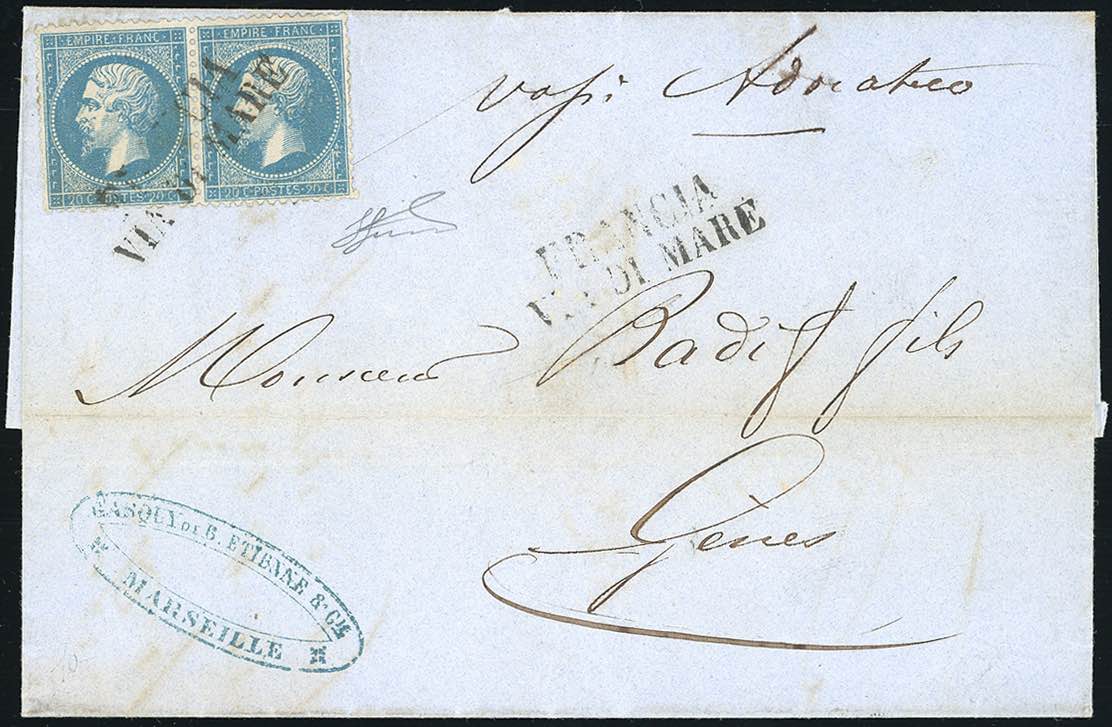 EMPIRE FRANC
EMPIRE FRANC
20 C POSTES 20 C
20 C POSTES 20 C
CIA
VIA DI MARE
Adriatico
FRANCIA
VIA DI MARE
Monsieur Badif fils
Gênes
GASQUY DE B. ETIENNE & CIE
MARSEILLE